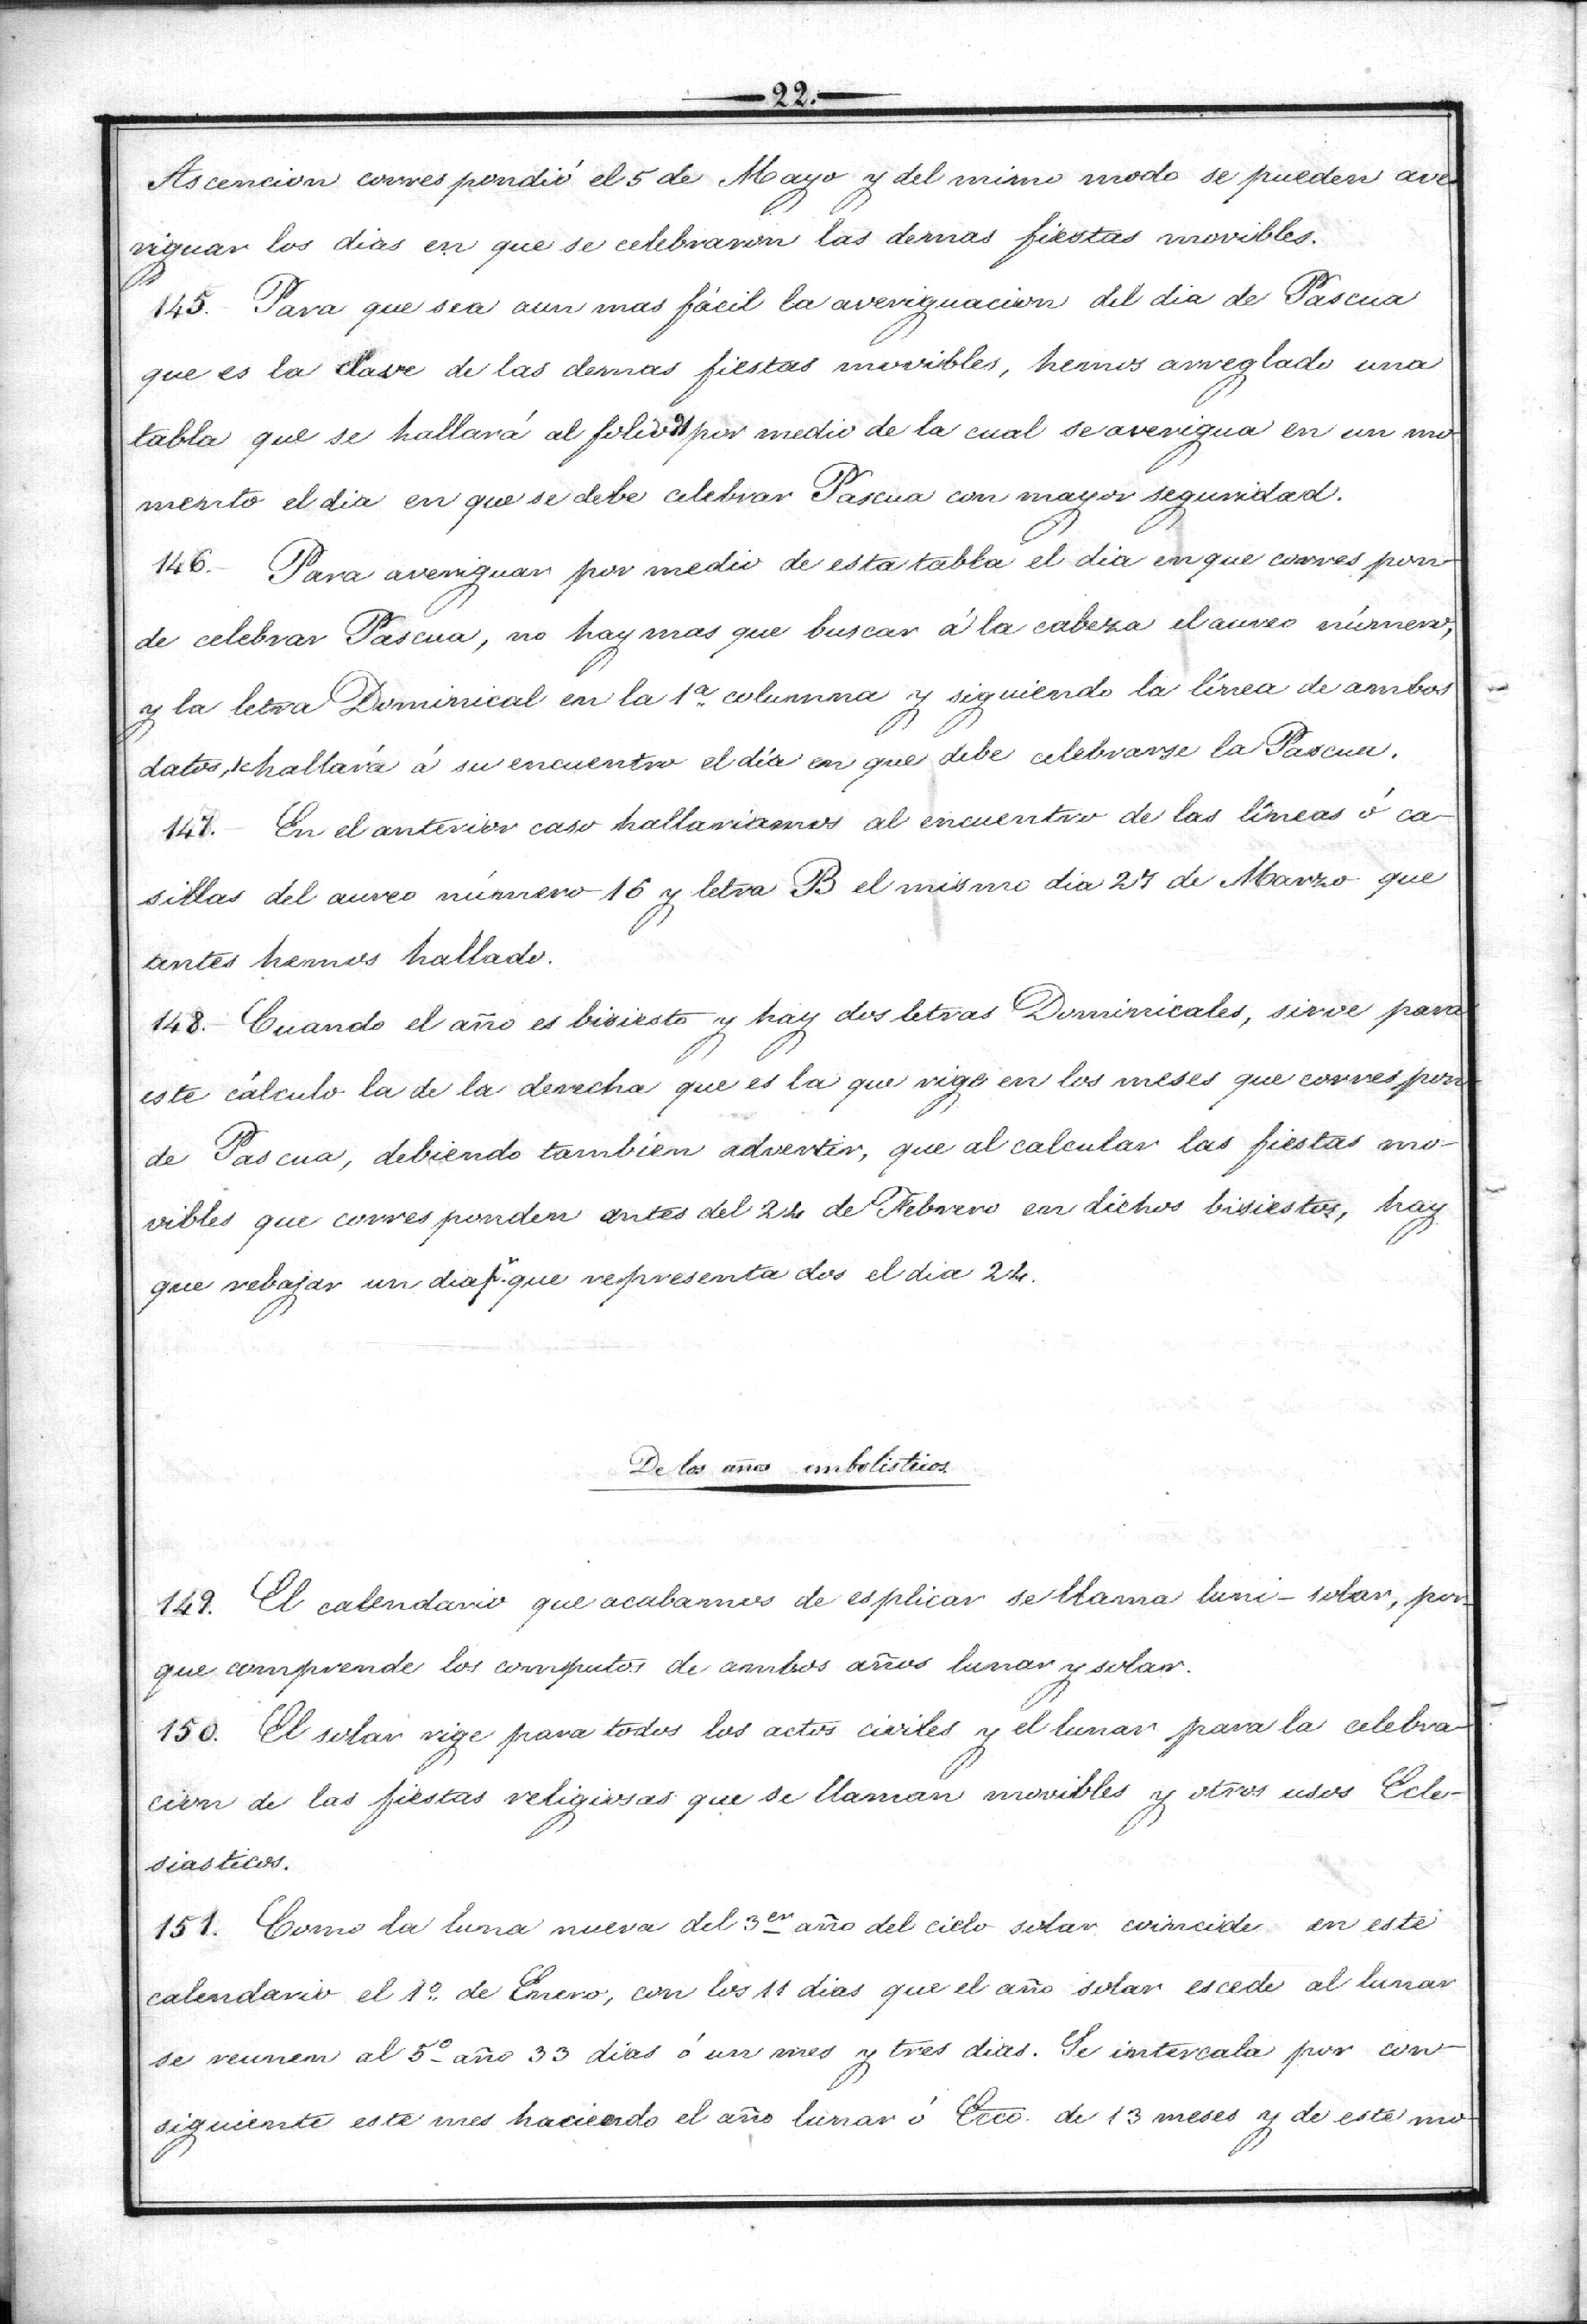 22.
Ascencion correspondió el 5 de Mayo y del mimo modo se pueden ave
riguar los dias en que se celebraron las demas fiestas movibles.
145. Para que sea aun mas fácil la averiguacion del dia de Pascua
que es la clave de las demas fiestas movibles, hemos arreglado una
tabla que se hallará al folio por medio de la cual se averigua en un mo
mento el dia en que se debe celebrar Pascua con mayor seguridad.
146.- Para averiguar por medio de esta tabla el dia en que correspon-
de celebrar Pascua, no hay mas que buscar á la cabeza el aureo número,
y la letra Dominical en la 1ª columna y siguiendo la línea de ambos
datos, se hallará á su encuentro el día en que debe celebrarse la Pascua.
147.- En el anterior caso hallariamos al encuentro de las líneas ó ca-
sillas del aureo número 16 y letra B el mismo dia 27 de Marzo que
antes hemos hallado.
148.- Cuando el año es bisiesto y hay dos letras Dominicales, sirve para
este cálculo la de la derecha que es la que rige en los meses que correspon
de Pascua, debiendo tambien advertir, que al calcular las fiestas mo-
vibles que corresponden antes del 24 de Febrero en dichos bisiestos, hay
que rebajar un dia pr. que representa dos el dia 24.
De los años embolisticos
149. El calendario que acabamos de esplicar se llama luni-solar, por-
que comprende los computos de ambos años lunar y solar.
150. El solar rige para todos los actos civiles y el lunar para la celebra-
cion de las fiestas religiosas que se llaman movibles y otros usos Ecle-
siasticos.
151. Como la luna nueva del 3er año del ciclo solar coincide en este
calendario el 1º de Enero, con los 11 dias que el año solar escede al lunar
se reunen al 5º año 33 dias ó un mes y tres dias. Se intercala por con-
siguiente este mes haciendo el año lunar ó Ecco. de 13 meses y de este mo-